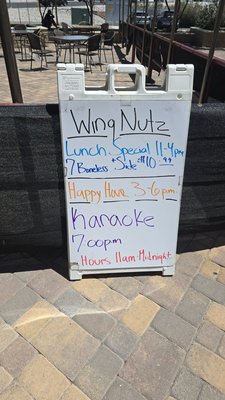 Wing Nutz
Lunch Special 11-4pm
7 Boneless + Side $10.99
Happy Hour 3-6pm
Karaoke
7:00pm
Hours 11am-Midnight